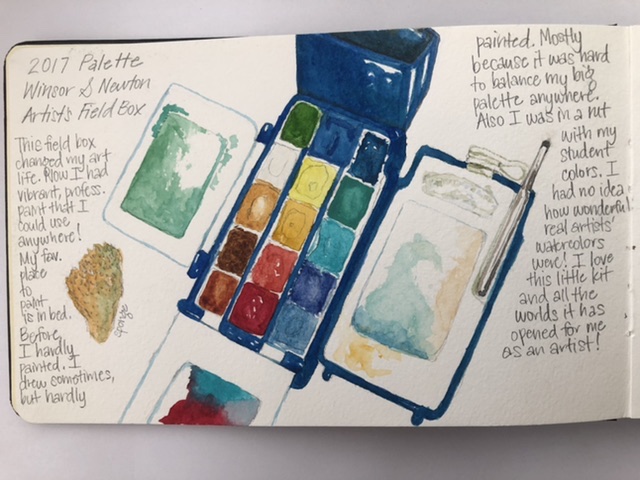 2017 Palette
Winsor & Newton
Artist's Field Box
This field box
changed my art
life. Now I had
vibrant, profess.
paint that I
could use
anywhere!
My fav.
place
to
paint
is in bed.
Before
I hardly
painted. I
drew sometimes,
but hardly
sponge
painted. Mostly
because it was hard
to balance my big
palette anywhere.
Also I was in a rut
with my
student
colors. I
had no idea
how wonderful
real artists'
watercolors
were! I love
this little kit
and all the
worlds it has
opened for me
as an artist!